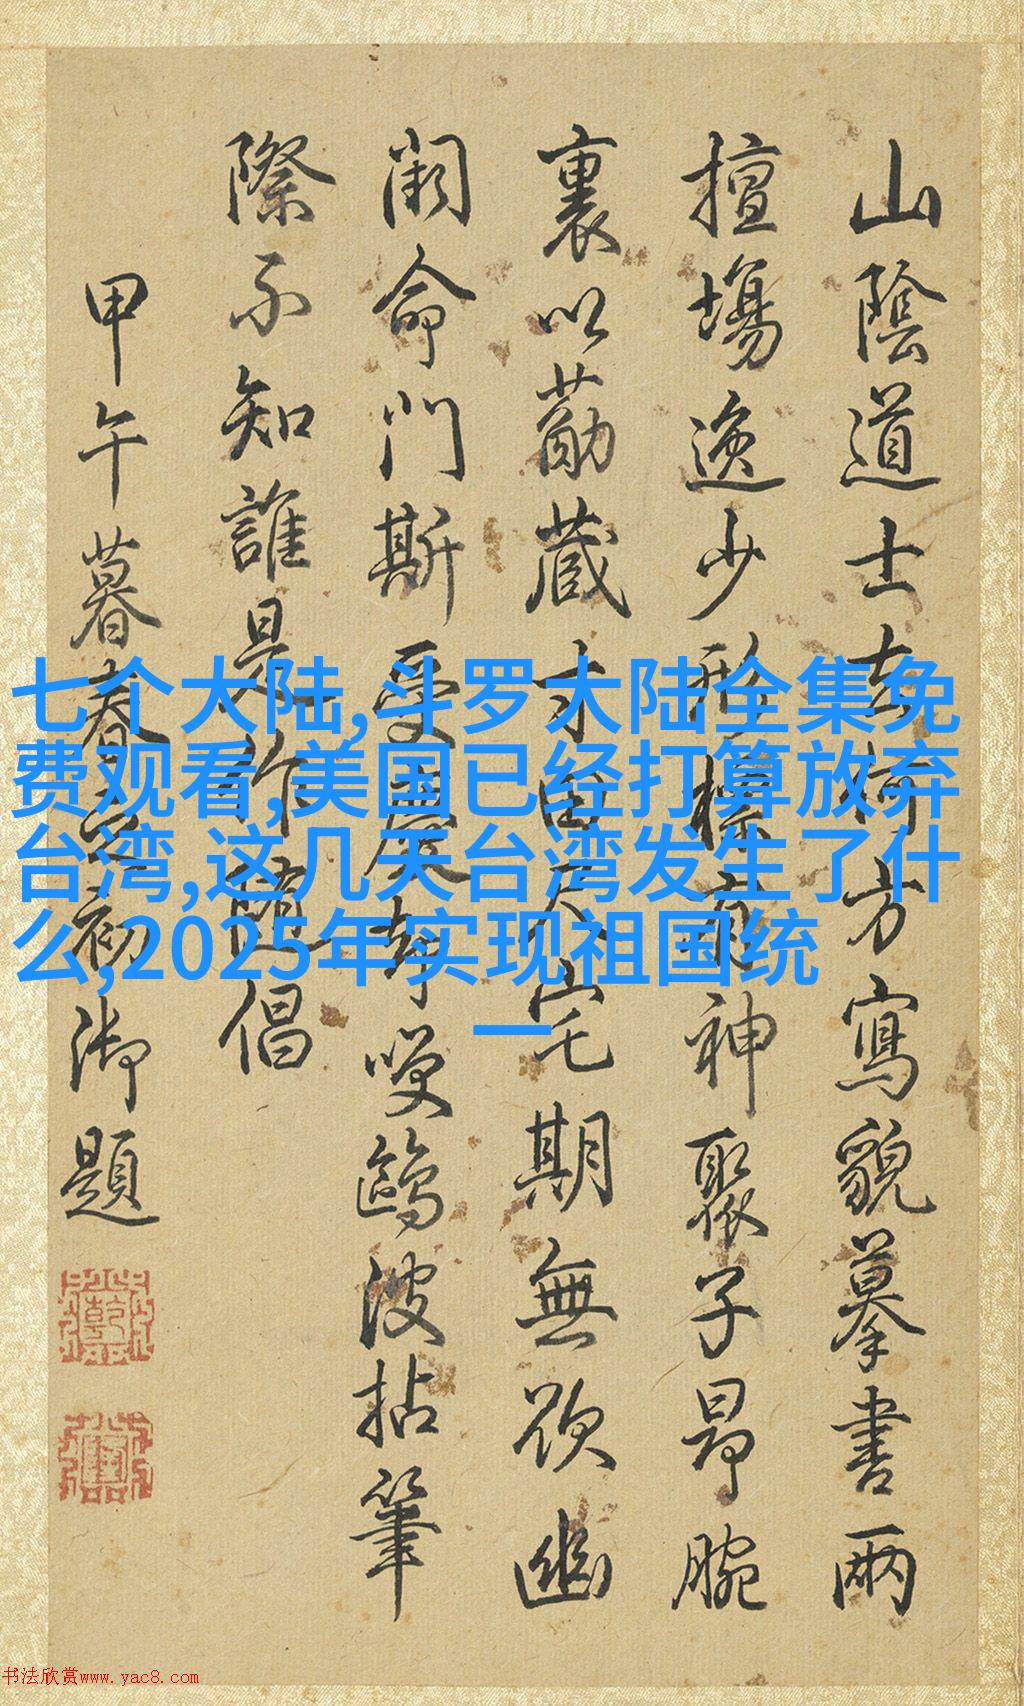 山陰道士在何方寫貌摹書兩
擅場逸少形神聚子昂腕
裏以勛藏宅期無欲幽
命門斯受廛却鷗波拈筆
際不知誰是作隨倡
甲午暮春之初御題
七个大陆,斗罗大陆全集免
费观看,美国已经打算放弃
台湾,这几天台湾发生了什
么,2025年实现祖国统
一
书法欣赏www.yac8.com